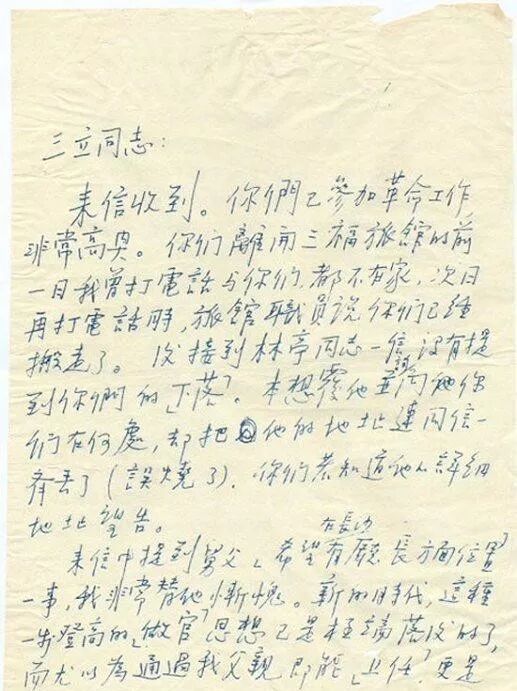 三立同志：
来信收到。你們已參加革命工作
非常高興。你们離開三福旅館的前
一日我曾打電話与你们，都不在家，次日
再打電話時，旅館職員說你们已經
搬走了。後接到林亭同志一信，没有提
到你們的「下落」。本想覆他並詢他你
們在何處，却把他的地址連同信一
齊丟了（誤燒了）。你们若知道他的詳細
地址望告。
来信中提到舅父「希望在長沙有廳長方面位置」
一事，我非常替他慚愧。新的時代，這種
一步登高的「做官」思想已是極端落後的了，
而尤以為通過我父親即能「上任」，更是